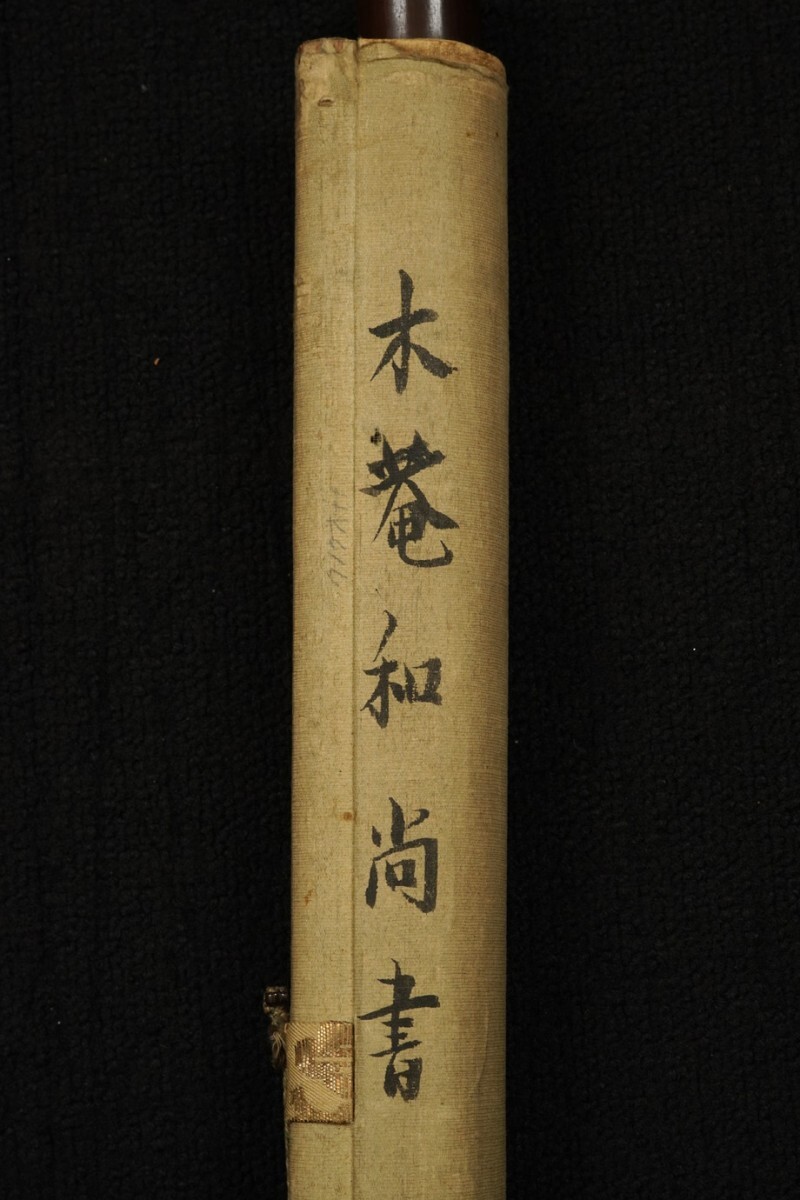 木菴和尚書